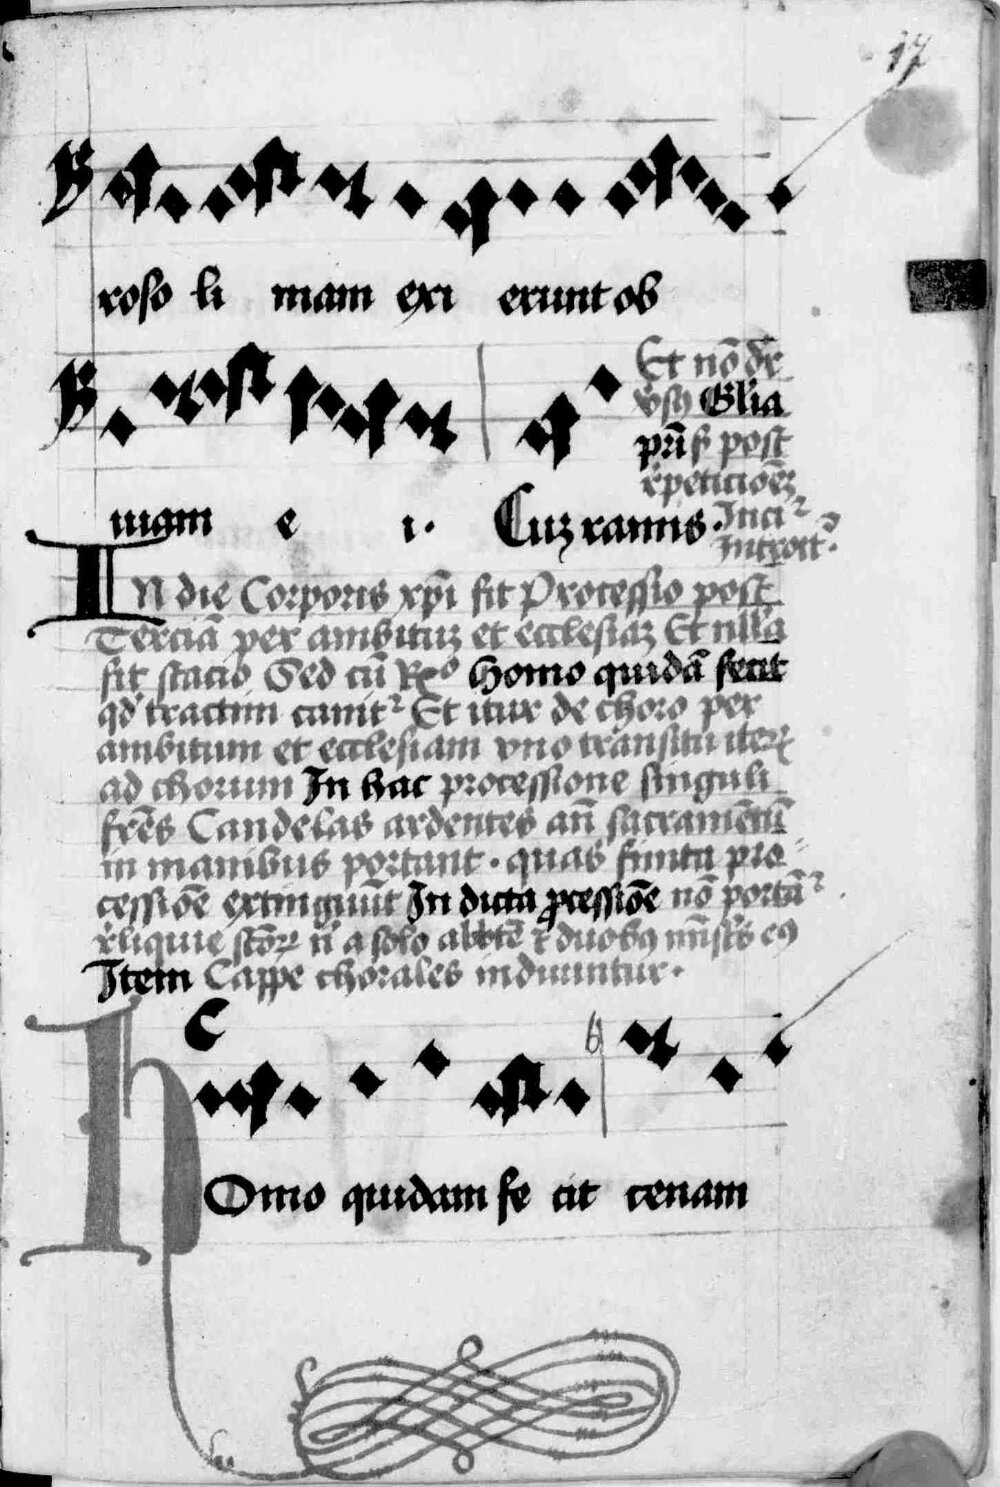 17
roso li mam exi erunt ob
Et nō dr̄
v̓sꝯ Gl̓ia
pr̄i ẜ post
r̓peticiōeꝫ
uiam e i. Cuꝫ ramis. Inci
Introit.
IN die Corporis xp̄i fit Processio post
Terciā per ambituꝫ et ecclesiaꝫ Et nlla
fit stacio Sed cū Rꝫº Homo quidā fecit
qd̓ tractim canit᷑ Et itur de choro per
ambitum et ecclesiam vno transitu iteꝝ
ad chorum In hac processione singuli
fr̄es Candelas ardentes an̄ sacramētū
in manibus portant. quas finita pro
cessiōe extingūut In dicta ꝓcessiōe nō portāt᷑
reliquie sc̄oꝝ n̓ a solo abbte ⁊ duobꝫ mīstris eꝯ
Item Cappe chorales induuntur.
HOmo quidam fe cit cenam